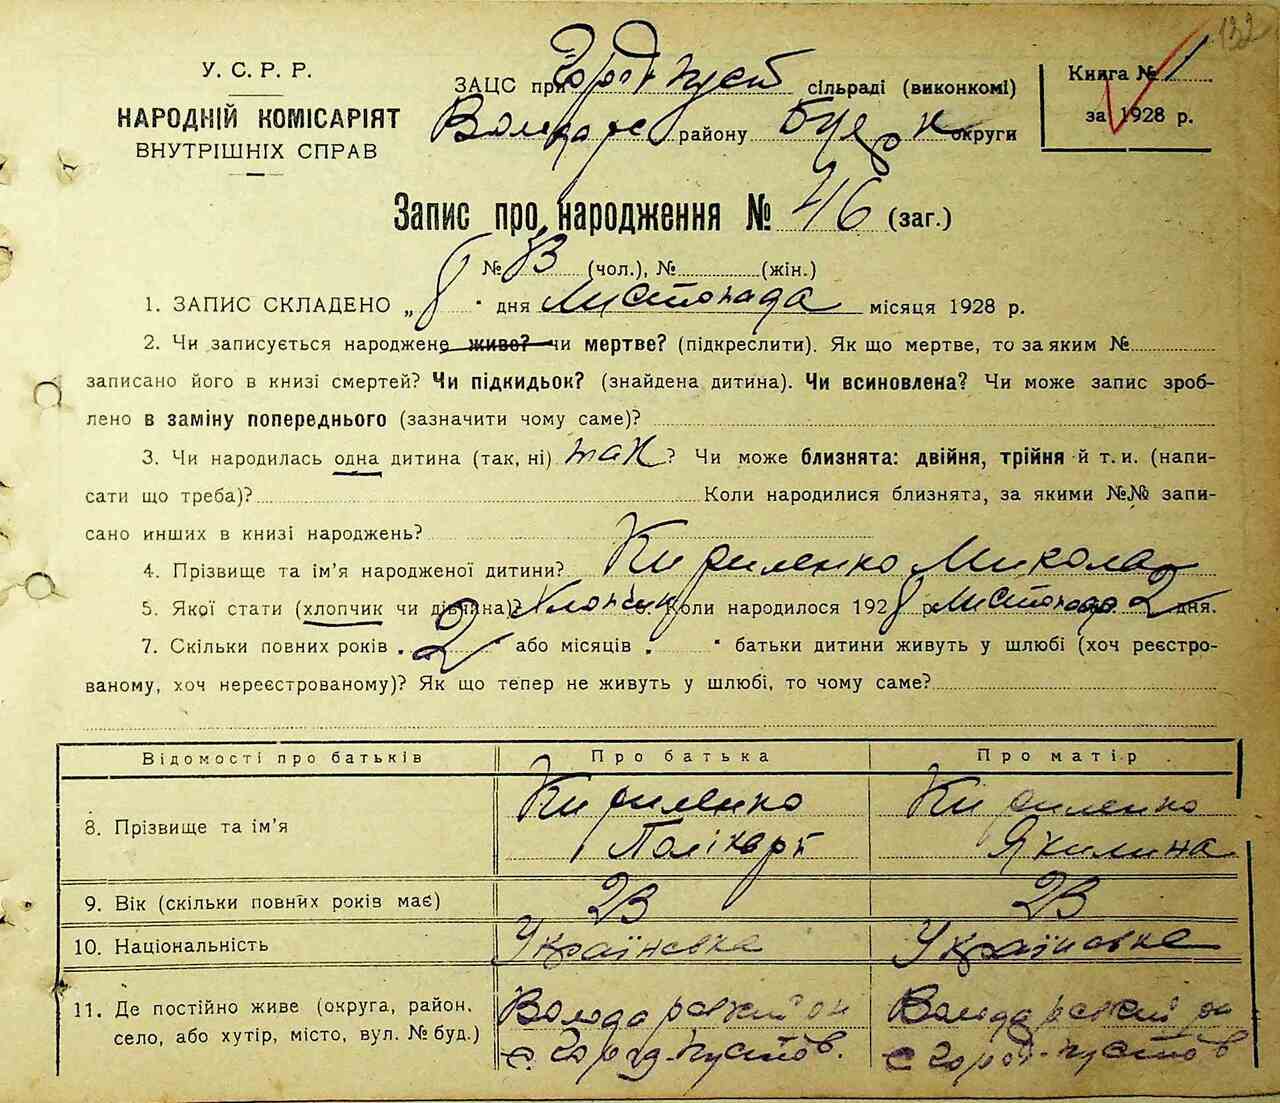 132
У. С. Р. Р.
НАРОДНІЙ КОМІСАРІЯТ
ВНУТРІШНІХ СПРАВ
ЗАЦС при Город Пуст сільраді (виконкомі)
Володарс району Б. Церк округи
Книга № 1
за 1928 р.
Запис про народження № 46 (заг.)
№ (чол.), № (жін.)
1. ЗАПИС СКЛАДЕНО „8" дня Листопада місяця 1928 р.
2. Чи записується народжене живе? чи мертве? (підкреслити). Як що мертве, то за яким №
записано його в книзі смертей? Чи підкидьок? (знайдена дитина). Чи всиновлена? Чи може запис зроб-
лено в заміну попереднього (зазначити чому саме)?
3. Чи народилась одна дитина (так, ні) так? Чи може близнята: двійня, трійня й т. и. (напи-
сати що треба)? Коли народилися близнята, за якими №№ запи-
сано инших в книзі народжень?
4. Прізвище та ім'я народженої дитини? Кириленко Микола
5. Якої статі (хлопчик чи дівчина)? Хлопчик 6. Коли народилося 1928 р. Листопада 2 дня.
7. Скільки повних років „2" або місяців „ " батьки дитини живуть у шлюбі (хоч реєстро-
ваному, хоч нереєстрованому)? Як що тепер не живуть у шлюбі, то чому саме?
Відомості про батьків Про батька Про матір
8. Прізвище та ім'я Кириленко Полікарп Кириленко Якилина
9. Вік (скільки повних років має) 23 23
10. Національність Українська Українська
11. Де постійно живе (округа, район, Володарський рн Володарський рн
село, або хутір, місто, вул. № буд.) с Город-Пустов. с Город-Пустов